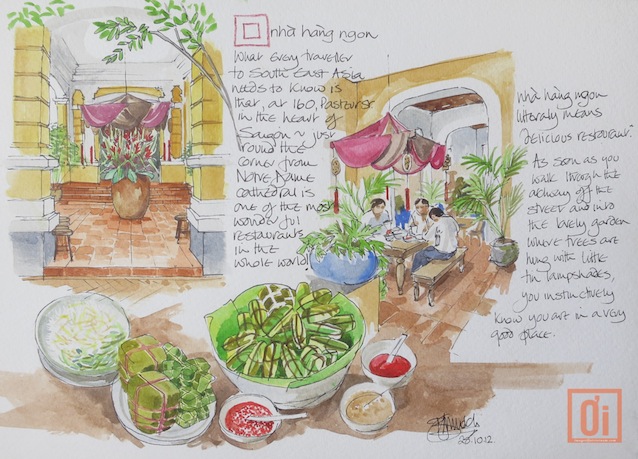 nhà hàng ngon
What every traveller
to South East Asia
needs to know is
that, at 160, Pasteur st
in the heart of
Saigon ~ just
round the
corner from
Notre Dame
cathedral is
one of the most
wonderful
restaurants
in the
whole world!
nhà hàng ngon
literally means
'delicious restaurant.'
As soon as you
walk through the
archway off the
street and into
the lovely garden
where trees are
hung with little
tin lampshades,
you instinctively
know you are in a very
good place.
20.10.12.
ơi